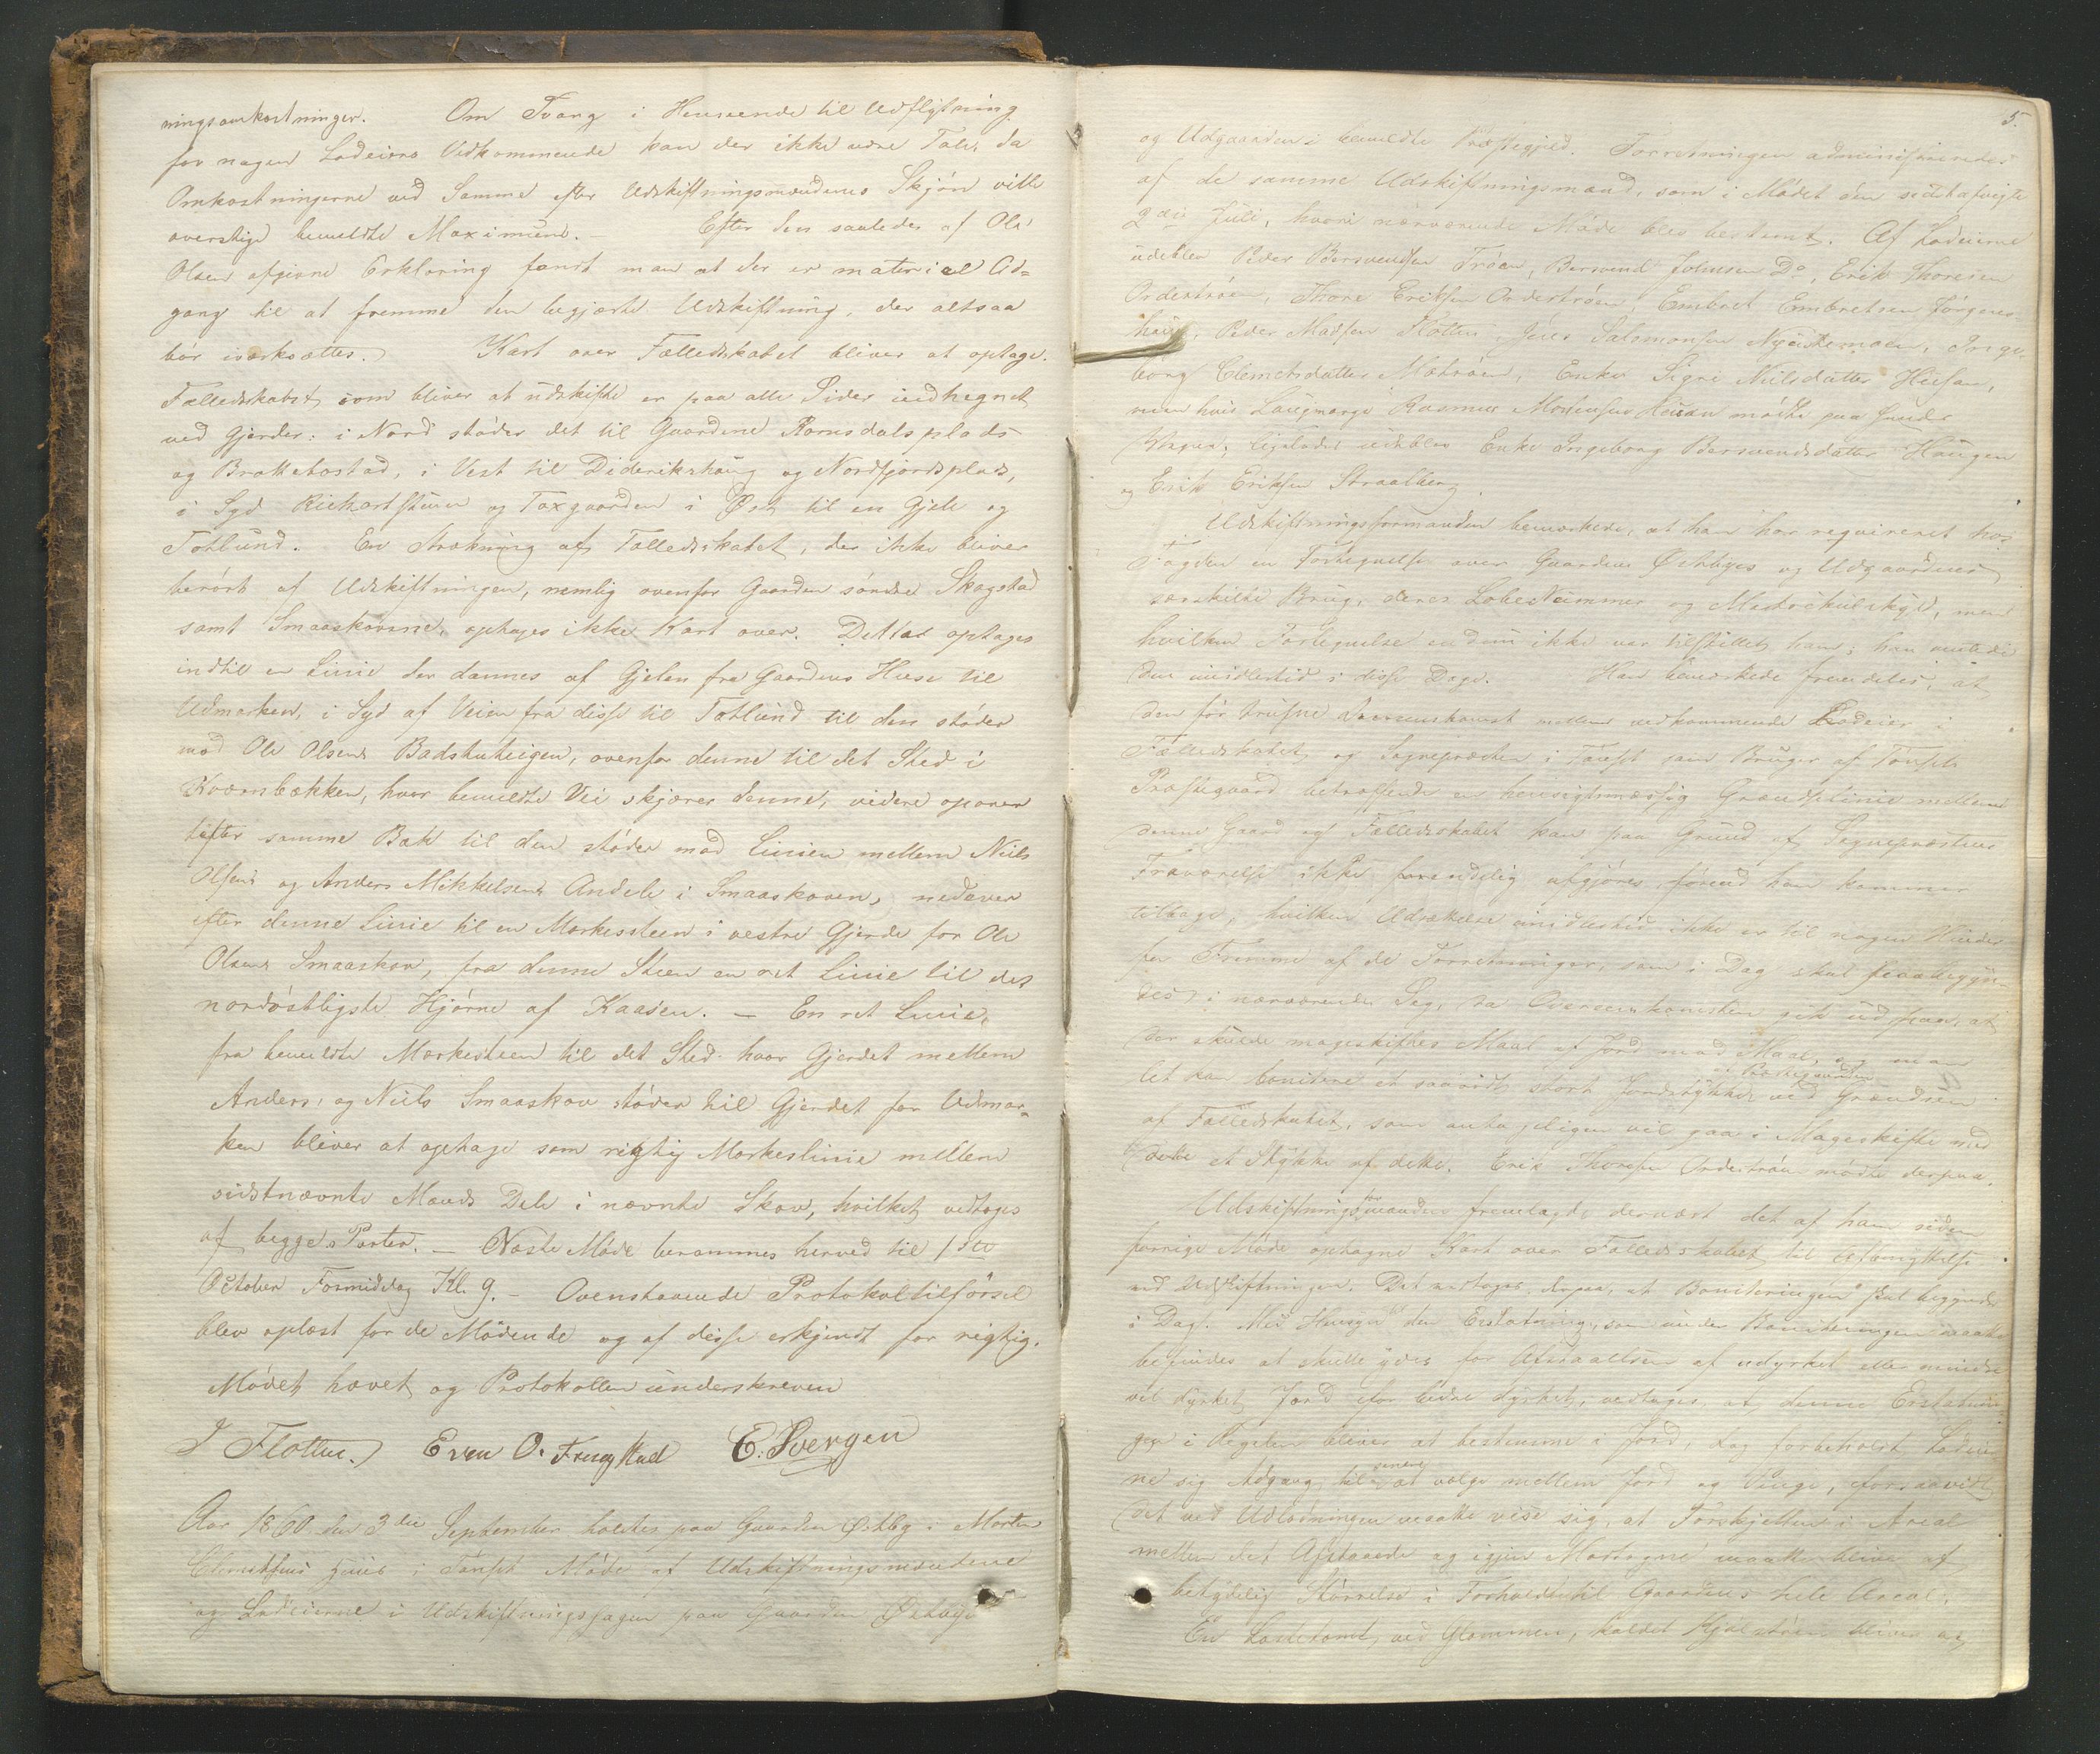 ningsomkostninger. Om Tvang i Henseende til Udflytning
for nogen Lodeiers Vedkommende kan der ikke være Tale, da
Omkostningerne ved Samme efter Udskiftningsmændenes Skjøn ville
overstige bemeldte Maximum. – Efter den saaledes af Ole
Olsen afgivne Erklæring fandt man at der er materiel Ad=
gang til at fremme den begjærte Udskiftning, der altsaa
bør iværksættes. Kart over Fælledskabet bliver at optage.
Fælledskabet som bliver at udskifte er paa alle Sider indhegnet
ved Gjerder: i Nord støder det til Gaardene Ramsdalsplads
og Brattebostad, i Vest til Diderikshaug og Nordfjordsplads,
i Syd og Taxgaarden i Øst til en Gjele og
Totlund. En Strækning af Fælledskabet, der ikke bliver
berørt af Udskiftningen, nemlig ovenfor Gaarden søndre Skogstad
samt Smaaskovene, optages ikke Kart over. Dettas optages
indtil en Linie der dannes af Gjelen fra Gaardens Huse til
Udmarken, i Syd af Veien fra disse til Totlund til den støder
mod Ole Olsens Badstuteigen, ovenfor denne til det Sted i
Kværnbækken, hvor bemeldte Vei skjærer denne, videre opover
efter samme Bæk til den støder mod Linien mellem Niels
Olsens og Anders Mikkelsens Andele i Smaaskoven, nedover
efter denne Linie til en Merkessteen i vestre Gjerde for Ole
Olsens Smaaskov, fra denne Steen en ret Linie til det
nordøstligste Hjørne af Kaasen. – En ret Linie,
fra bemeldte Merkesteen til det Sted hvor Gjerdet mellem
Anders og Niels Smaaskov støder til Gjerdet for Udmar=
ken bliver at optage som rigtig Merkeslinie mellem
sidstnævnte Mænds Dele i nævnte Skov, hvilket vedtoges
af begge Parter. – Næste Møde berammes herved til 1ste
October Formiddag Kl. 9. – Ovenstaaende Protokoltilførsel
blev oplæst for de Mødende og af disse erkjendt for rigtig.
Mødet hævet og Protokollen underskreven
J Flottum. Even O. E. Svergen
Aar 1860 den 3die September holdtes paa Gaarden Østby i Morten
Clemetsens Huus i Tønset Møde af Udskiftningsmændene
og Lodeierne i Udskiftningssagen paa Gaarden Østbye
5.
og Udgaarden i bemeldte Præstegjeld. Forretningen administreredes
af de samme Udskiftningsmænd, som i Mødet den sidstafvigte
2den Juli, hvori nærværende Møde blev bestemt. Af Lodeierne
udeblev Peder Bersvendsen Trøen, Bersvend Johnsen Do, Erik Thoresen
Ordestrøen, Thore Eriksen Ordestrøen, Embret Embretsen Jørgens=
haug, Peder Madsen Jens Salomonsen Inge=
borg Clemetsdatter Moetrøen, Enke Sigri Nielsdatter
men hvis Laugværge Rasmus Mortensen mødte paa hendes
Vegne; ligeledes udeblev Enke Ingeborg Bersvendsdatter Haugen
og Erik Eriksen Straalberg.
Udskiftningsformanden bemærkede, at han har requireret hos
Fogden en Fortegnelse over Gaarden Østbyes og Udgaardenes
særskilte Brug, deres LøbeNummer og Matrikulskyld, men
hvilken Fortegnelse endnu ikke var tilstillet ham; han ventede
den imidlertid i disse Dage. Han bemærkede fremdeles, at
den før trufne Overenskomst mellem vedkommende Lodeier i
Fælledskabet og Sognepræsten i Tønset som Bruger af Tønset
Præstegaard betræffende en hensigtsmæssig Grændselinie mellem
denne Gaard og Fælledskabet kan paa Grund af Sognepræstens
Fraværelse ikke endelig afgjøres, førend han kommer
tilbage, hvilken Udsættelse imidlertid ikke er til nogen Hinder
for Fremme af de Forretninger, som i Dag skal paabegyn=
des i nærværende Sag, da Overenskomsten gik ud paa, at
der skulde mageskiftes Maal af Jord mod Maal, og man
let kan bonitere et saavidt stort Jordstykke ved Grændsen
Præstegaarden
af Fælledskabet, som antageligen vil gaa i Mageskifte med
et Stykke af dette. Erik Thoresen Ordestrøen mødte derpaa.
Udskiftningsformanden fremlagde dernæst det af ham siden
forrige Møde optagne Kart over Fælledskabet til Afbenyttelse
ved Udskiftningen. Det vedtoges derpaa, at Boniteringen skal begynde
i Dag. Med Hensyn til den Erstatning, som under Boniteringen maatte
befindes at skulle ydes for Afstaaelsen af udyrket eller mindre
vel dyrket Jord for bedre dyrket, vedtoges, at denne Erstatnin=
gen i Regelen bliver at bestemme i Jord, dog forbeholdt Lodeier=
ne sig Adgang til senere at vælge mellem Jord og Penge, forsaavidt
det ved Udlodningen maatte vise sig, at Forskjellen i Areal
mellem det Afstaaede og igjen Modtagne maatte blive af
betydelig Størrelse i Forhold til Gaardens hele Areal.
En ved Glommen, kaldet bliver at